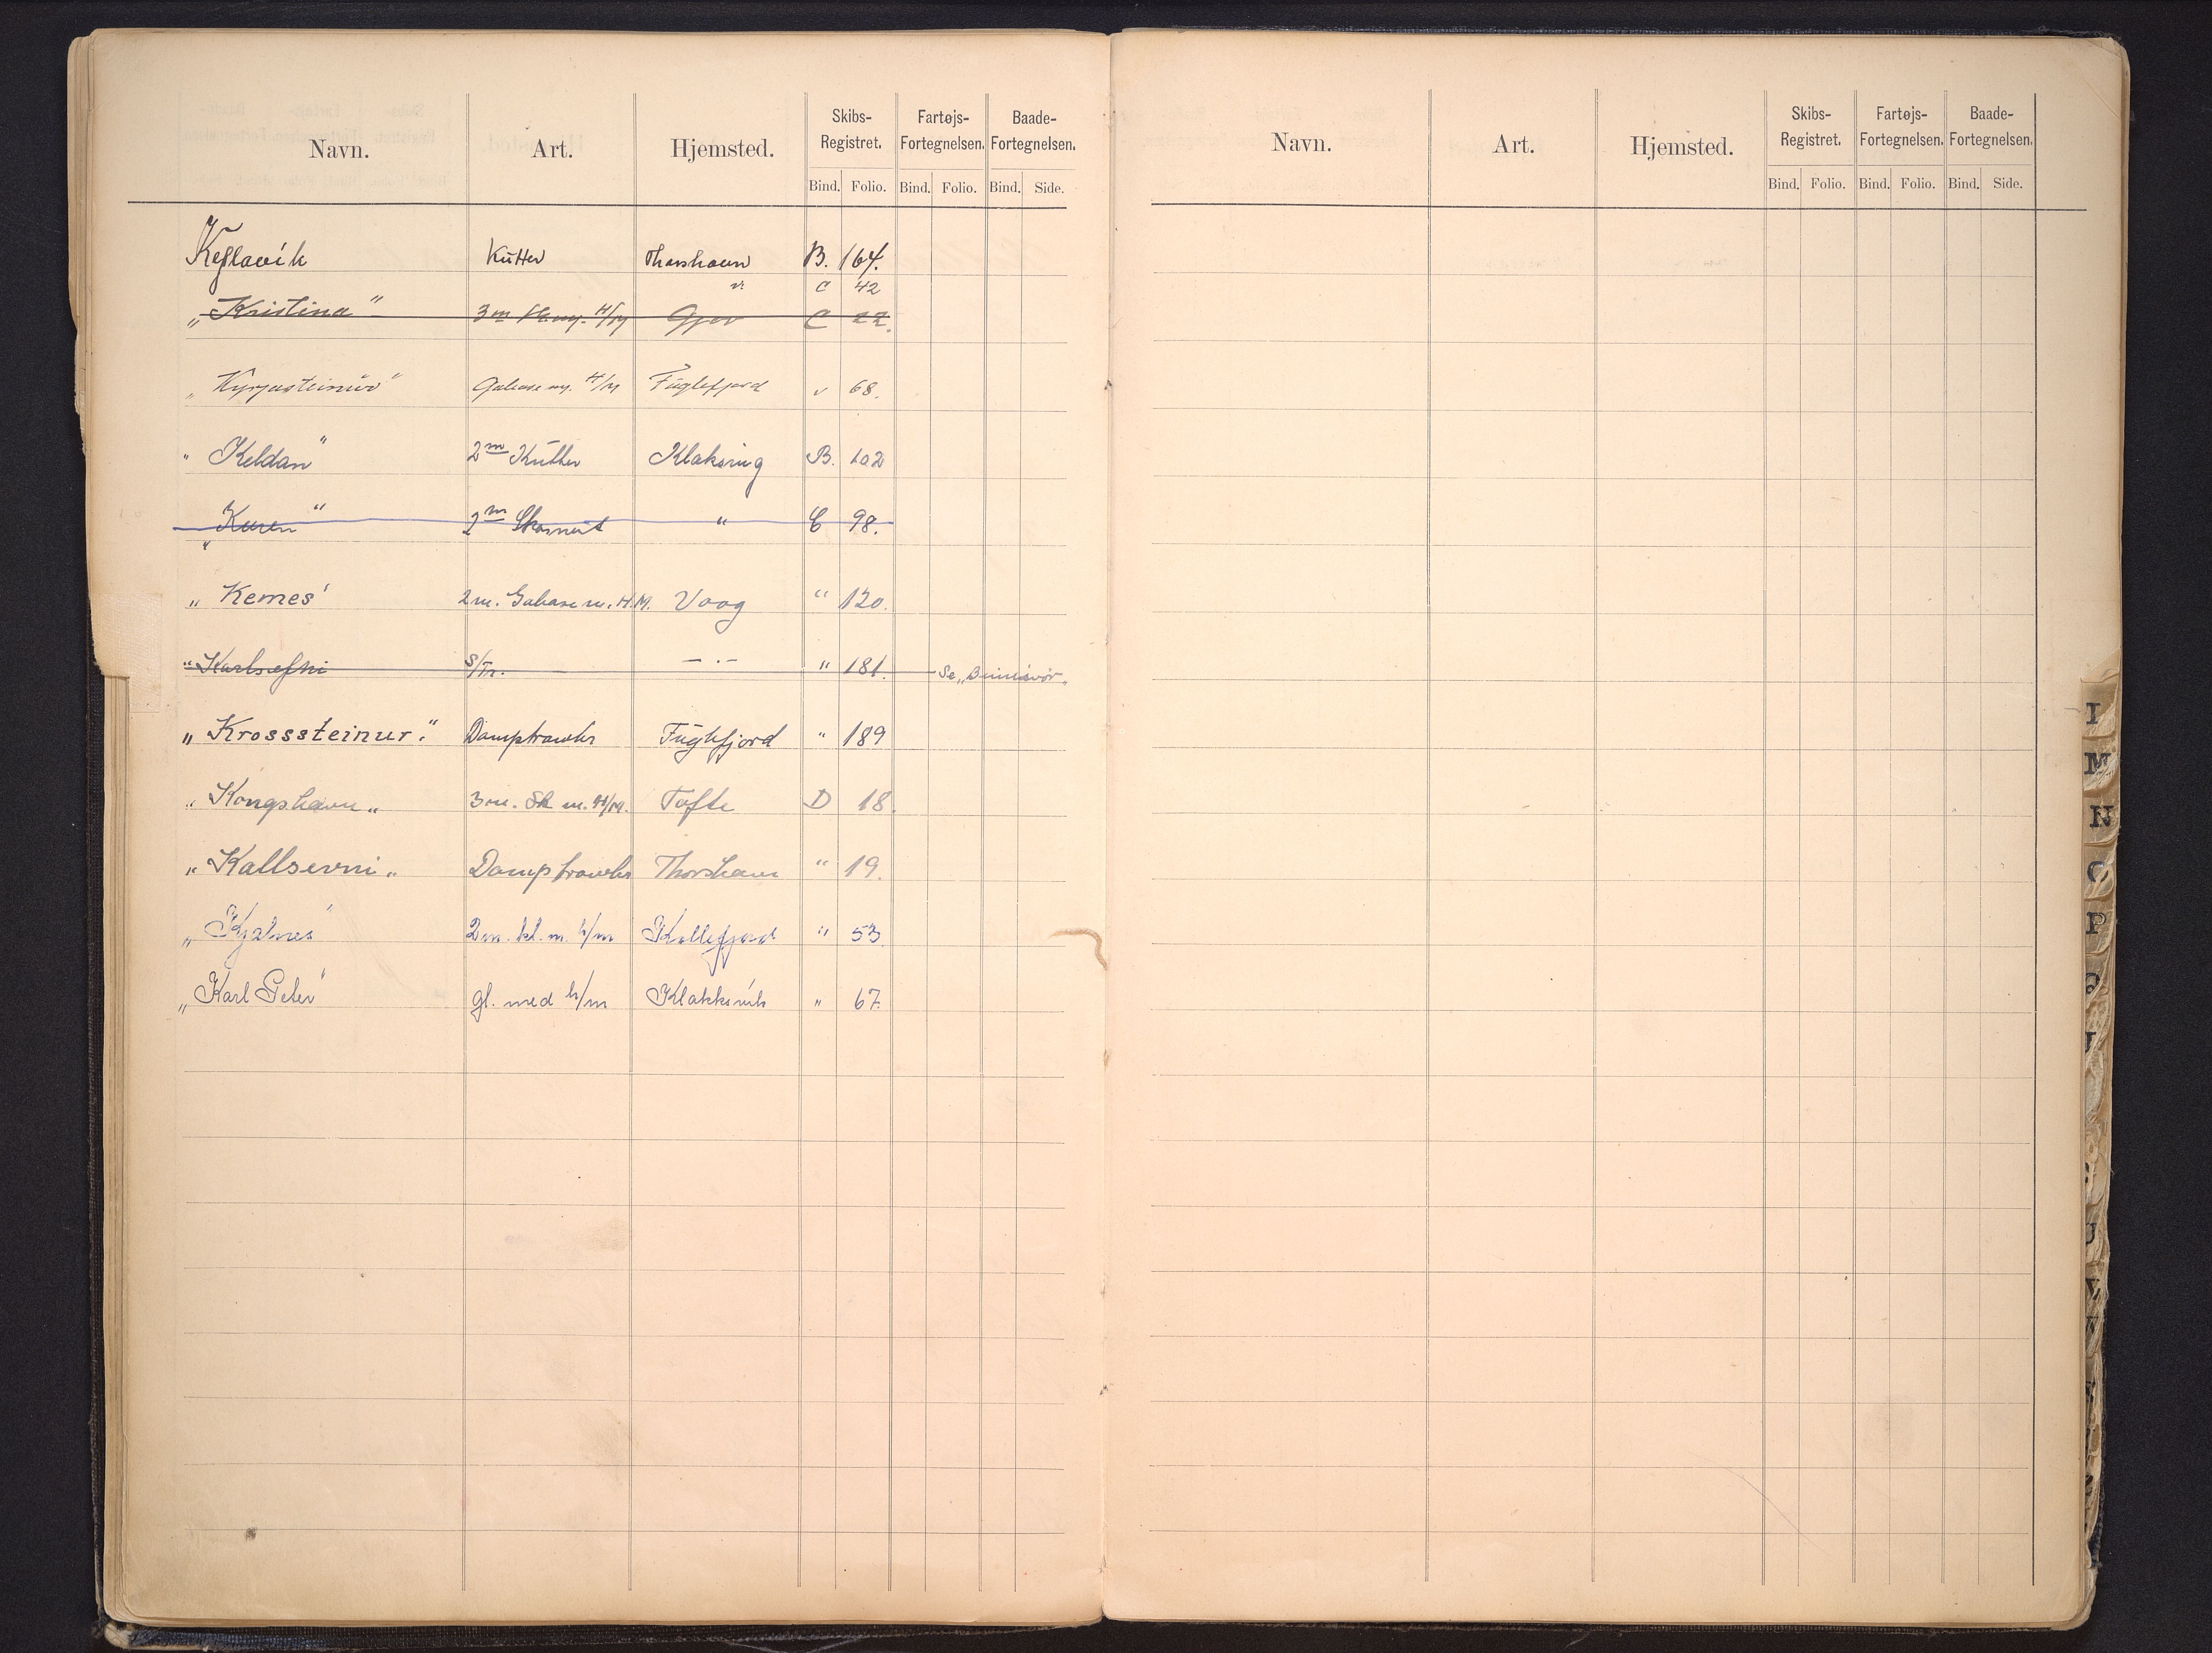 Navn. Art. Hjemsted. Skibs-Registret. Fartøjs-Fortegnelsen. Baade-Fortegnelsen.
Bind. Folio. Bind. Folio. Bind. Side.
Keflavik Kutter Thorshavn B. 164.
C 42
„Kristina" 3m H/M Gjov C 22.
„Kyrjasteinur" Galease m. H/M Fuglefjord 68.
„Keldan" 2m Kutter Klaksvig B. 102
„Karen" 2m Skonnert " C 98.
„Kemes" 2m. Galease m. H.M. Vaag " 120.
"Karlsefni S/Tr. — . — " 181. Se „Binnisvør„
„Krosssteinur." Damptrawler Fuglefjord " 189
„Kongshavn„ 3m. Sk m. H/M. Tofte D 18.
„Kallsevni„ Damptrawler Thorshavn " 19.
„Kjalnes" 2m. kt. m. h/m Kollefjord " 53.
„Karl Peter" gl. med h/m Klakksvik " 67.
Navn. Art. Hjemsted. Skibs-Registret. Fartøjs-Fortegnelsen. Baade-Fortegnelsen.
Bind. Folio. Bind. Folio. Bind. Side.
I
M
N
O
P